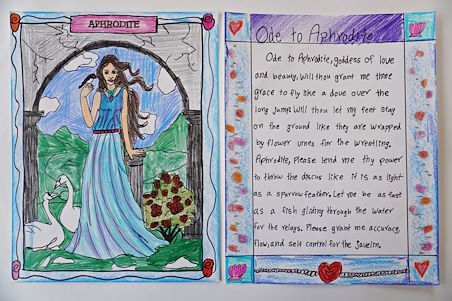 APHRODITE
Ode to Aphrodite
Ode to Aphrodite, goddess of love
and beauty. Will thou grant me thine
grace to fly like a dove over the
long jump? Will thou let my feet stay
on the ground like they are wrapped
by flower vines for the wrestling.
Aphrodite, Please lend me thy power
to throw the discus like it is as light
as a sparrow feather. Let me be as fast
as a fish gliding through the water
for the relays. Please grant me accuracy,
flow, and self control for the Javelin.